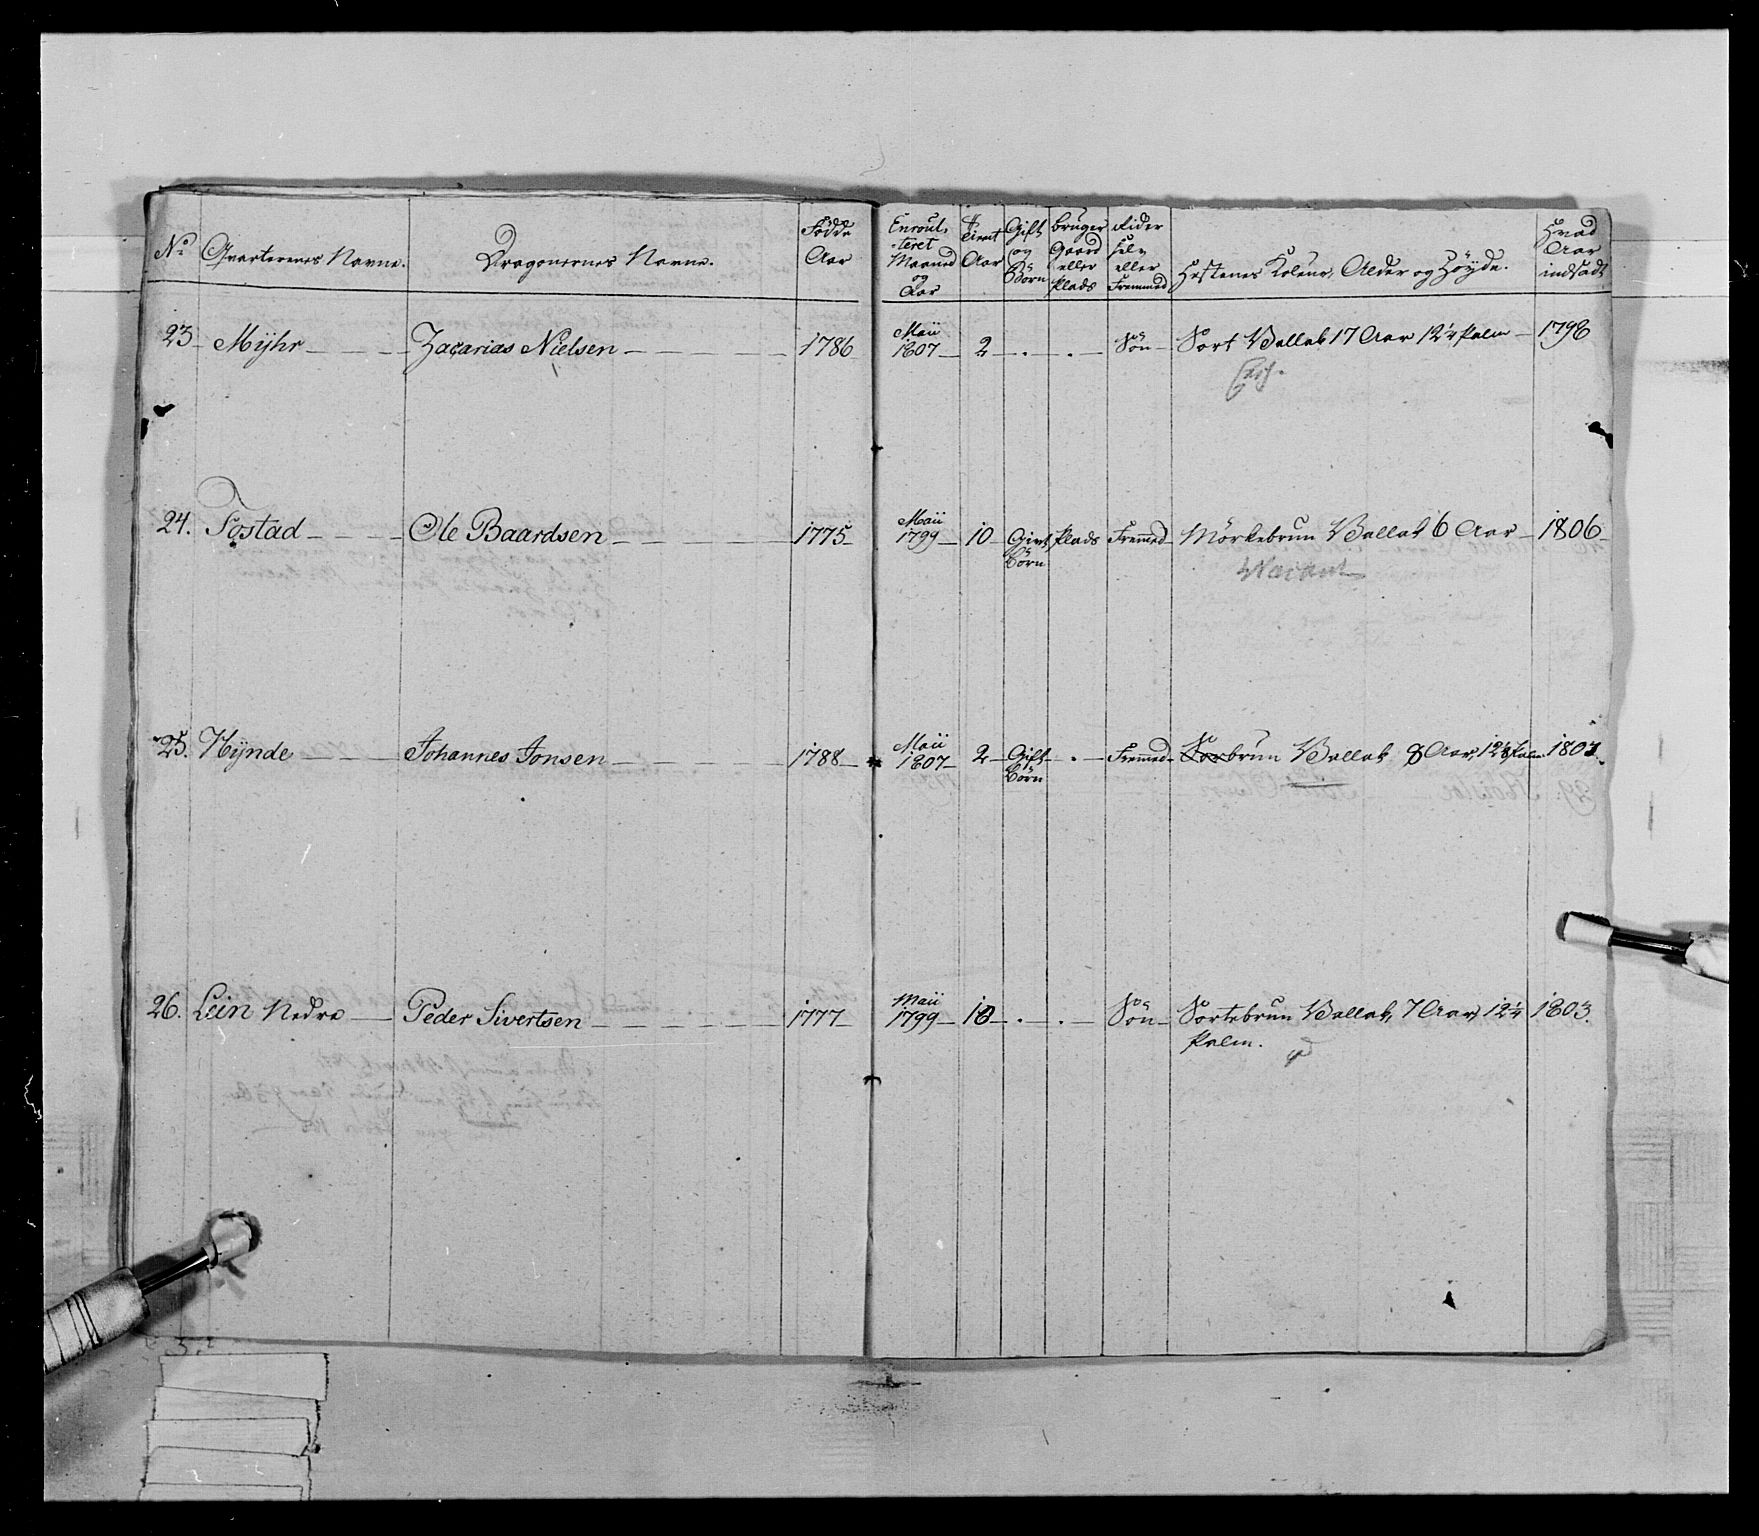 No Qvarterenes Navne. Dragonernes Navne. Födde Aar Enroul-leret Maaned og Aar Tient Aar Gift og Börn bruger Gaard eller Plads Rider selv eller Fremmed Hestenes Koleur, Alder og Höyde. Hvad Aar indsadt
23 Mÿhr Zacarias Nielsen 1786 Maii 1807 2 Sön Sort Vallak 17 Aar 12 1/4 Palm 1798
24. Tostad Ole Baardsen 1775 Maii 1799 10 Givt, Börn Plads Fremed Mörkebrun Vallak 6 Aar 1806
Vacant
25. Hÿnde Johannes Jonsen 1788 Maii 1807 2 Gift Börn Fremed brun Vallak 8 Aar, 12 1/8 Palm 1807
26. Lein Nedre Peder Sivertsen 1777 Maii 1799 10 Sön Sortebrun Vallak, 7 Aar, 12 1/4 1803.
Palm.